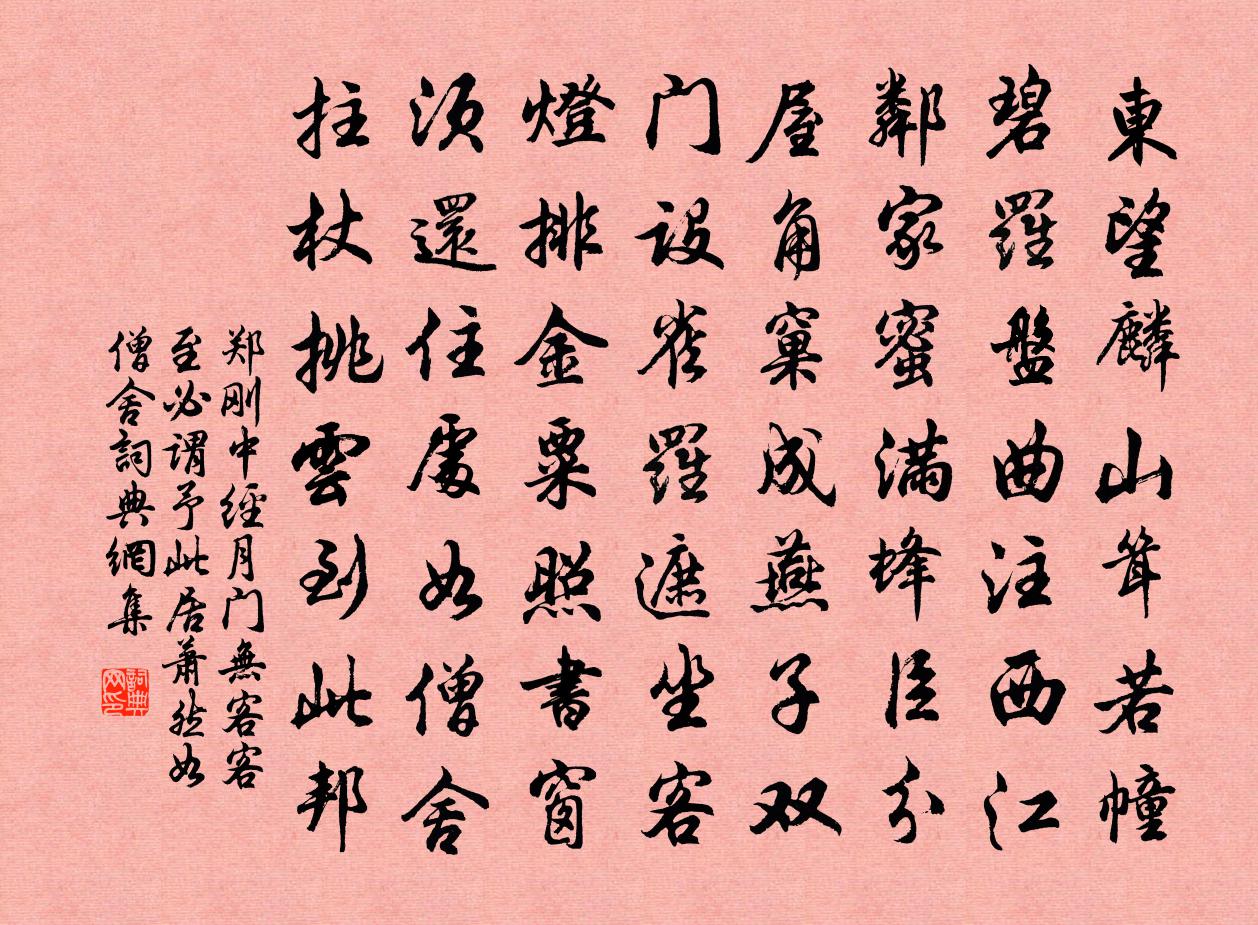 東望麟山耸若幢
碧羅盤曲注西江
鄰家蜜滿蜂臣分
屋角窠成燕子双
门設雀羅遮坐客
燈排金粟照書窗
须還住處如僧舍
拄杖挑雲到此邦
郑刚中經月门無客客
至必謂予此居蕭然如
僧舍詞典網集
詞典网印